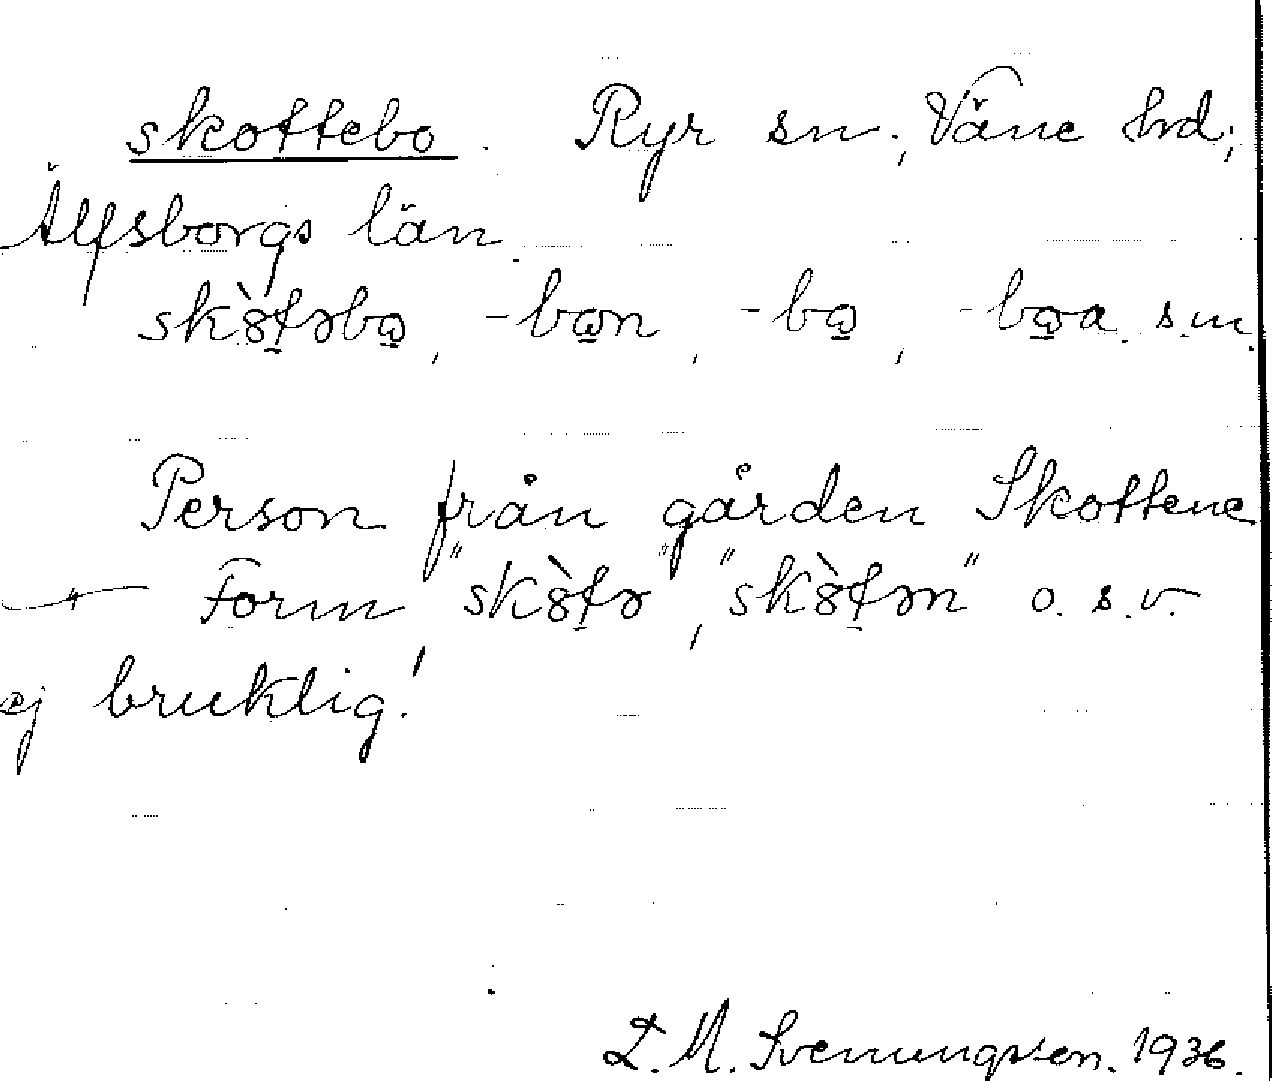 skottebo. Ryr sn; Väne hd;
Älfsborgs län.
skò̤tǝbo̤, -bo̤n, -bo̤, -bo̤a s.m.
Person från gården Skottene
— Form "skò̤tǝ", "skò̤tǝn" o.s.v.
ej bruklig!
L. M. Svenungsson. 1936.